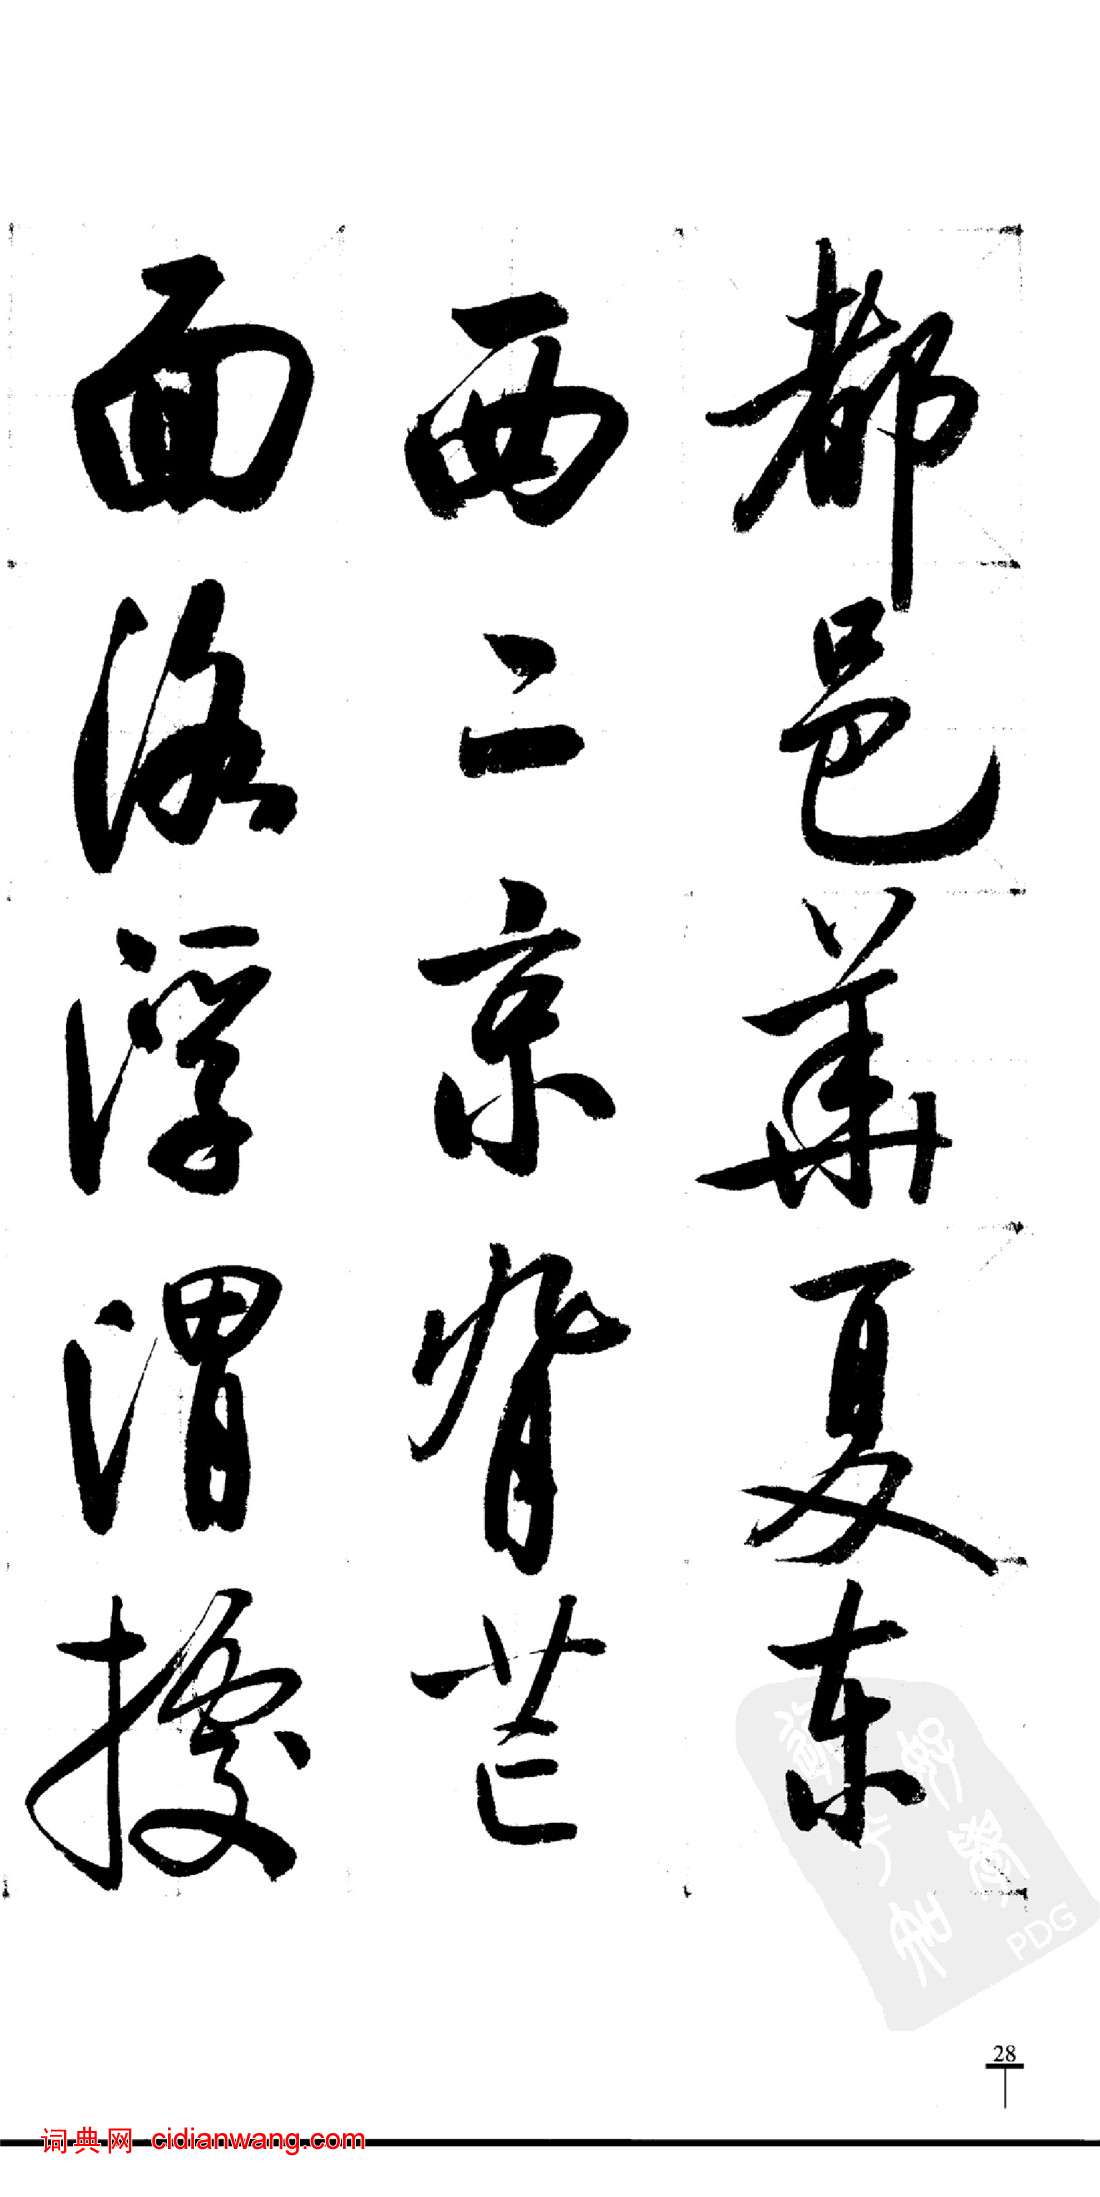 都邑華夏东
西二京背芒
面洛浮渭據
28
词典网 cidianwang.com
PDG